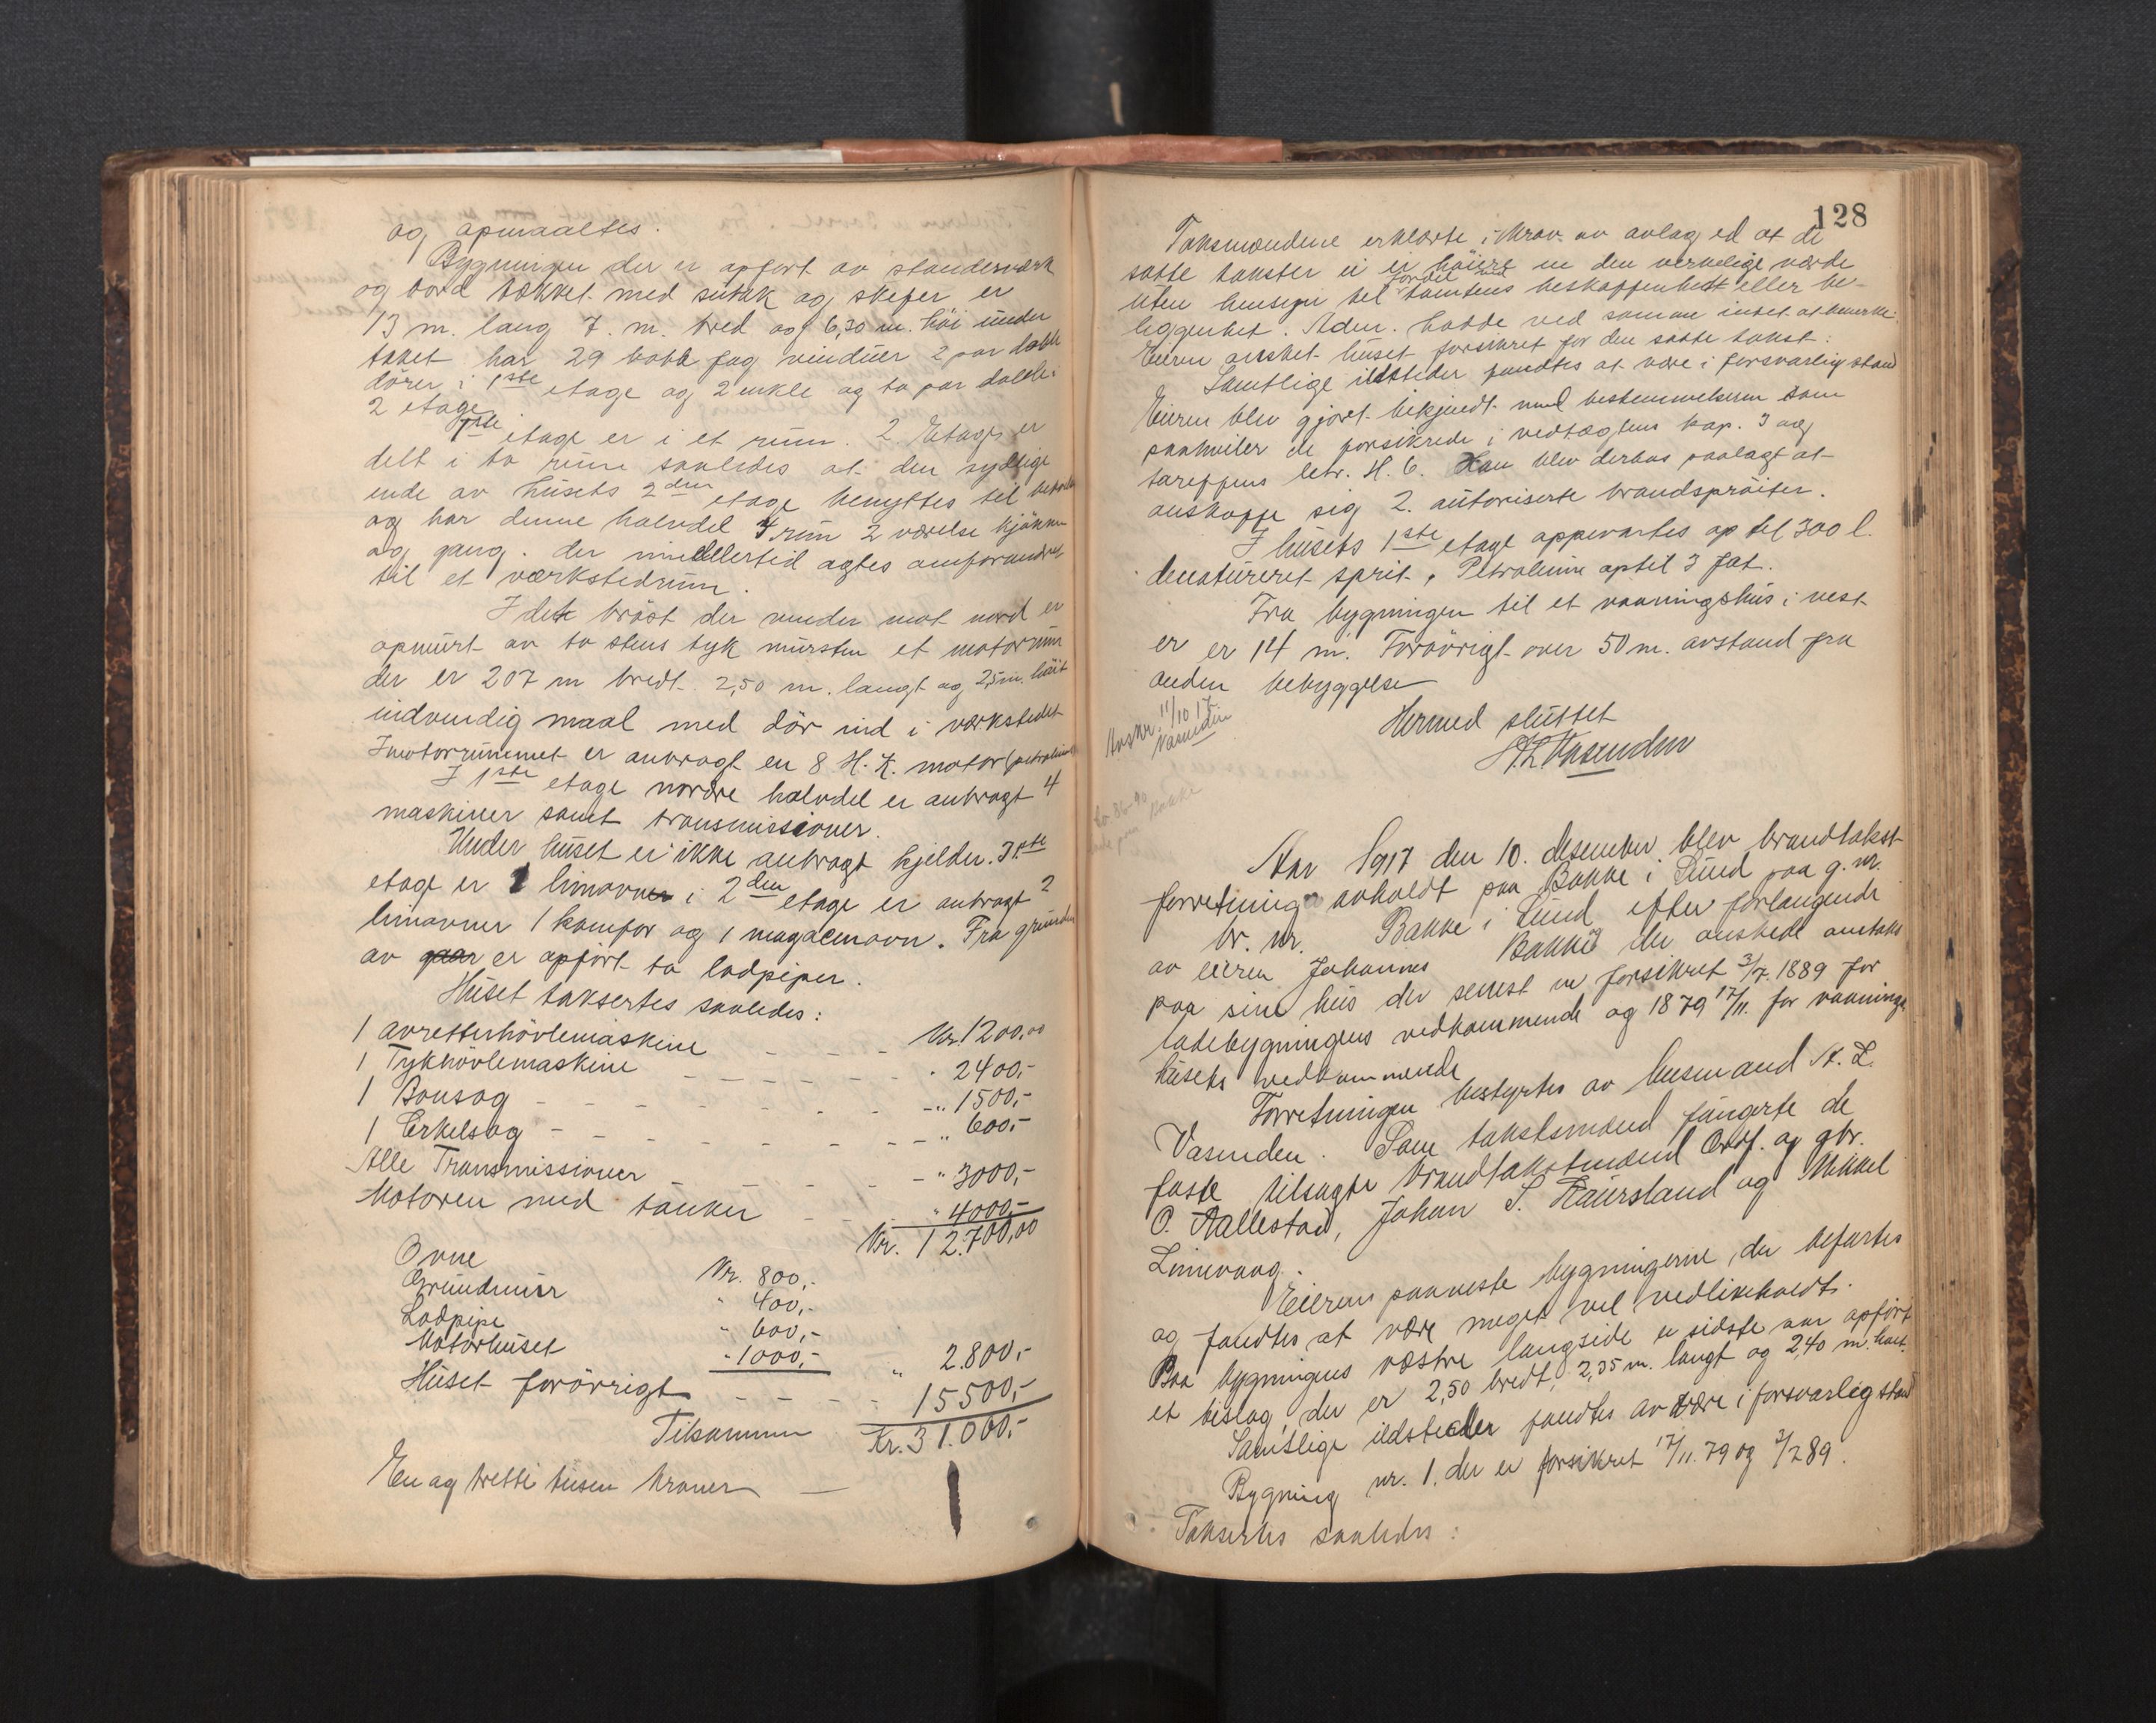 og opmaaltes.
Bygningen der er opført av stenderværk
og bord tækket med sutak og skefer er
13 m. lang 7. m. bred og 6,30 m. høi under
taket har 29 fag vinduer 2 par dobb
dører i 1ste etage og 2 enkle og to par dobb.
2 etage.
1ste etage er i et rum. 2. Etage er
delt i to rum saaledes at den sydlige
ende av husets 2den etage benyttes til
og har denne halvdel 4 rum 2 værelse kjøkken
og gang. der imidlertid agtes omforandres
til et værkstedrum.
I det brøst der vender mot nord er
opmurt av to stens tyk mursten et motorrum
der er 207 m bredt. 2,50 m. langt og 2,5 m. høit
indvendig maal med dør ind i værkstedet
I motorrummet er anbragt en 8 H. K. motor (petroleum
I 1ste etage nordre halvdel er anbragt 4
maskiner samt transmissioner.
Under huset er ikke anbragt kjelder. I 1ste
etage er 1 limovn i 2den etage er anbragt 2
limovner 1 komfor og 1 magasinovn. Fra grunden
av er opført to lodpiper.
Huset taksertes saaledes:
1 avretterhøvlemaskine - - - Kr. 1200,00
1 Tykhøvlemaskine - - - - - - " 2400,-
1 Bonsag - - - - - - - - " 1500,-
1 Sirkelsag - - - - - - - - " 600,-
Alle Transmissioner - - - - " 3000,-
Motoren med tanker - - - " 4000,-
Kr. 12.700,00
Ovne Kr. 800,-
Grundmur " 400,-
Lodpipe " 600,-
Motorhuset " 1000,- " 2.800,-
Huset forøvrigt - - - - 15500,-
Tilsammen Kr. 31.000,-
En og tretti tusen kroner —
128
Taksmændene erklærte i krav av avlag ed at de
satte takster ei er høiere en den verkelige værde
uten hensyn til fordel ved tomtens beskaffenhet eller be-
liggenhet. Adm. hadde ved samme intet at bemerke.
Eieren ønsket huset forsikret for den satte takst:
Samtlige ildsteder fandtes at være i forsvarlig stand
Eieren blev gjort bekjendt med bestemmelserne som
paahviler de forsikrede i vedtægtens kap. 3 og
tareffens litr. H. 6. Han blev derhos paalagt at
anskaffe sig 2. autoriserte brandsprøiter.
I husets 1ste etage oppevartes op til 300 l.
denatureret sprit, Petroleum optil 3 fat.
Fra bygningen til et vaaningshus i vest
er er 14 m. Forøvrigt over 50 m. avstand fra
anden bebyggelse
Avskr. 11/10 17
Vasenden
Hermed sluttet
St. L. Vasenden
Aar 1917 den 10. desember blev brandtakst
forretning avholdt paa Bakke i Lund paa g. nr.
br. nr. Bakke i Lund efter forlangende
av eieren Johannes Bakke der ønskede omtakst
paa sine hus der senest er forsikret 3/7. 1889 for
ladebygningens vedkommende og 1879 17/11. for vaanings
husets vedkommende
Forretningen bestyrtes av lensmand St. L.
Vasenden. Som takstmænd fungerte de
faste tilsagte brandtakstmænd Ordf. og gbr.
O. Aallestad, Johan S. Haursland og Mikkel
Linevaag.
Eieren paaviste bygningerne, der befartes
og fandtes at være meget vel vedlikeholdt.
Paa bygningens væstre langside er sidste aar opført
et bislag, der er 2,50 bredt, 2,35 m. langt og 2,40 m. høit.
Samtlige ildsteder fandtes av være i forsvarlig stand
Bygning nr. 1. der er forsikret 17/11. 79 og 3/7 89.
Taksertes saaledes: